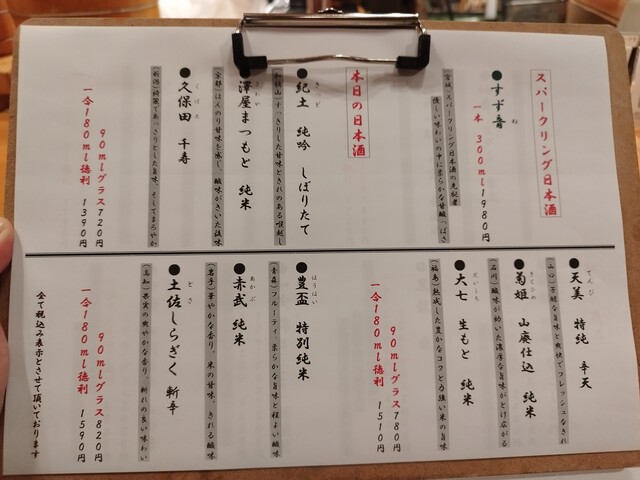 スパークリング日本酒
●すず音
ね
一本 300ml 1980円
(宮城)スパークリング日本酒の先駆者
優しい味わいの中に柔らかな甘酸っぱさ
本日の日本酒
きっど
●紀土 純吟 しぼりたて
(和歌山)すっきりした甘味ときれのある喉越し
さわや
●澤屋まつもと 純米
(京都)ほんのり甘味を感じ、酸味がきいた後味
くぼた
●久保田 千寿
(新潟)綺麗であっさりとした旨味、そしてまろやか
90mlグラス720円
一合180ml徳利 1390円
てんび
●天美 特純 辛天
(山口)芳醇な旨味と爽快でフレッシュなきれ
きくひめ
●菊姫 山廃仕込 純米
(石川)酸味が効いた濃厚な旨味がとけ広がる
だいしち
●大七 生もと 純米
(福島)熟成した豊かなコクと力強い米の旨味
90mlグラス780円
一合180ml徳利 1510円
ほうはい
●豊盃 特別純米
(青森)フルーティ 柔らかな旨味と程よい酸味
あかぶ
●赤武 純米
(岩手)華やかな香り、米の甘味、きれる酸味
とさ
●土佐しらぎく 斬辛
(高知)果実の爽やかな香り、斬れの良い味わい
90mlグラス820円
一合180ml徳利 1590円
全て税込み表示とさせて頂いております